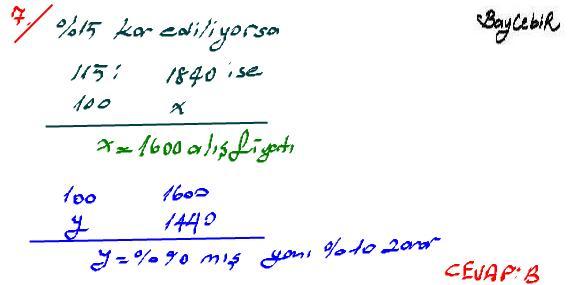 7./ %15 kar ediliyorsa
BayCebiR
115: 1840 ise
100 x
x = 1600 alış fiyatı
100 1600
y 1440
y = %90 mış yani %10 zarar
CEVAP: B